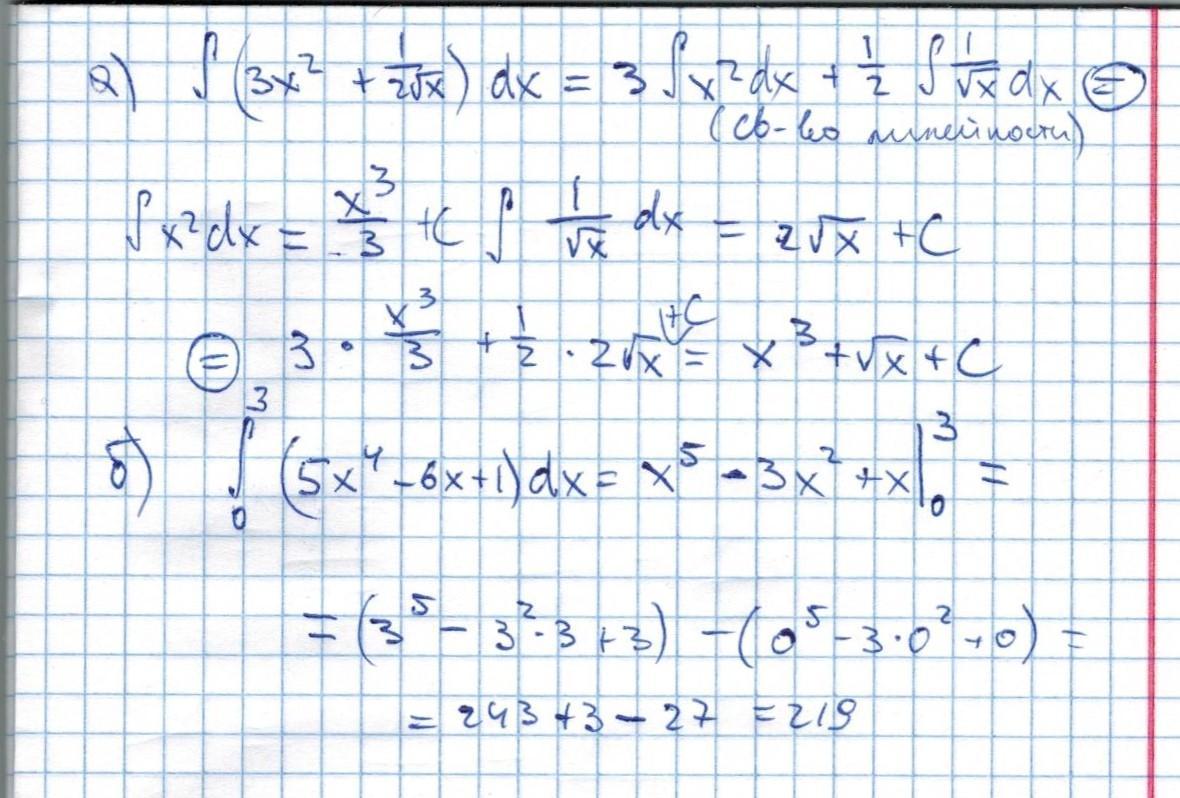 а) ∫ (3x² + 1/(2√x)) dx = 3 ∫ x² dx + 1/2 ∫ 1/√x dx ⊜
(св-во линейности)
∫ x² dx = x³/3 + C ∫ 1/√x dx = 2√x + C
⊜ 3 · x³/3 + 1/2 · 2√x +C = x³ + √x + C
б) ∫₀³ (5x⁴ - 6x + 1) dx = x⁵ - 3x² + x |₀³ =
= (3⁵ - 3² · 3 + 3) - (0⁵ - 3 · 0² + 0) =
= 243 + 3 - 27 = 219